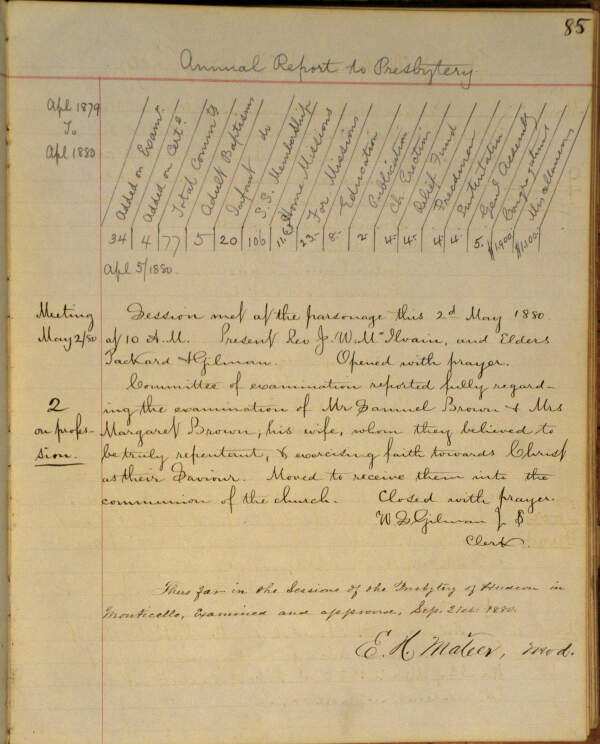 85
Annual Report to Presbytery
Apl 1879
To
Apl 1880
Added on Examn
Added on Certs
Total Commts
Adult Baptisms
Infant do
S.S. Membership
Home Missions
For Missions
Education
Publication
Ch. Erection
Relief Fund
Freedmen
Sustentation
Genl Assembly
Congregational
Miscellaneous
34 4 77 5 20 106 23. 8. 2. 4. 4. 4. 4. 5. $1900 $1300
Apl 5/1880.
Meeting
May 2/80
Session met at the parsonage this 2d May 1880
at 10 A.M. Present Rev J. W. McIlvain, and Elders
Packard & Gilman. Opened with prayer.
Committee of examination reported fully regard-
2
on profes-
sion.
ing the examination of Mr Samuel Brown & Mrs
Margaret Brown, his wife, whom they believed to
be truly repentent, & exercising faith towards Christ
as their Saviour. Moved to receive them into the
communion of the church. Closed with prayer.
W. S. Gilman Jr
Clerk.
Thus far in the Sessions of the Presbytery of Hudson in
Monticello, Examined and approved, Sep. 21st 1880.
E. K. Mateer, Mod.